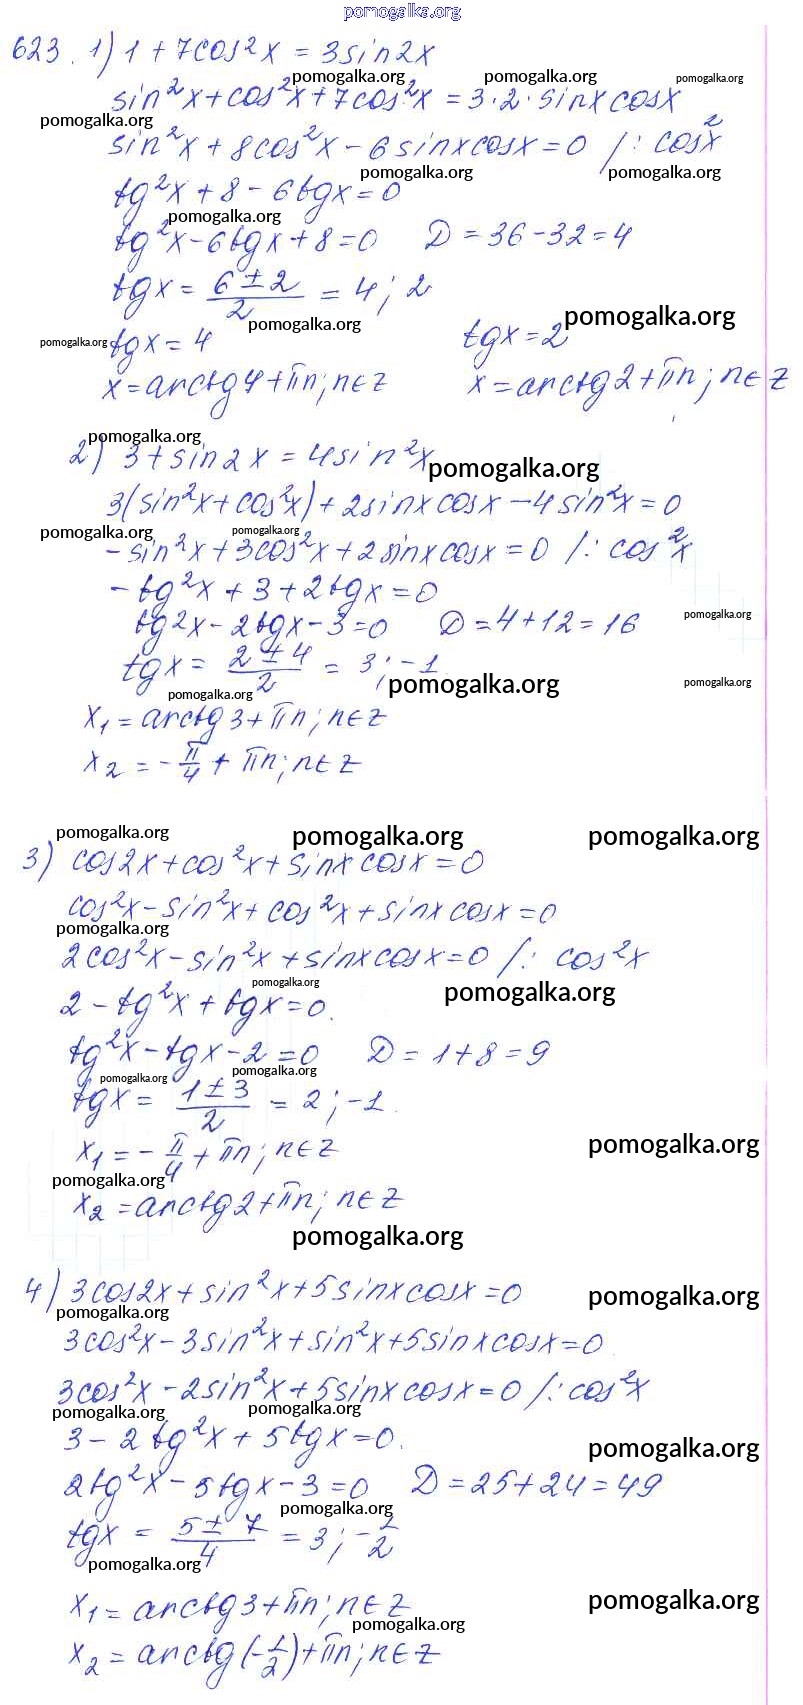 pomogalka.org
623. 1) 1 + 7cos²x = 3sin2x
pomogalka.org pomogalka.org pomogalka.org
sin²x + cos²x + 7cos²x = 3·2·sinxcosx
pomogalka.org
sin²x + 8cos²x - 6sinxcosx = 0 /: cos²x
pomogalka.org pomogalka.org
tg²x + 8 - 6tgx = 0
pomogalka.org
tg²x - 6tgx + 8 = 0 D = 36 - 32 = 4
tgx = (6 ± 2)/2 = 4; 2
pomogalka.org pomogalka.org
pomogalka.org tgx = 4 tgx = 2
x = arctg4 + πn; n∈Z x = arctg2 + πn; n∈Z
pomogalka.org
2) 3 + sin2x = 4sin²x
pomogalka.org
3(sin²x + cos²x) + 2sinxcosx - 4sin²x = 0
pomogalka.org pomogalka.org
-sin²x + 3cos²x + 2sinxcosx = 0 /: cos²x
-tg²x + 3 + 2tgx = 0
pomogalka.org
tg²x - 2tgx - 3 = 0 D = 4 + 12 = 16
tgx = (2 ± 4)/2 = 3; -1
pomogalka.org pomogalka.org pomogalka.org
x₁ = arctg3 + πn; n∈Z
x₂ = -π/4 + πn; n∈Z
pomogalka.org pomogalka.org pomogalka.org
3) cos2x + cos²x + sinxcosx = 0
cos²x - sin²x + cos²x + sinxcosx = 0
pomogalka.org
2cos²x - sin²x + sinxcosx = 0 /: cos²x
pomogalka.org pomogalka.org
2 - tg²x + tgx = 0.
tg²x - tgx - 2 = 0 D = 1 + 8 = 9
pomogalka.org pomogalka.org
tgx = (1 ± 3)/2 = 2; -1.
x₁ = -π/4 + πn; n∈Z
pomogalka.org
pomogalka.org
x₂ = arctg2 + πn; n∈Z
pomogalka.org
4) 3cos2x + sin²x + 5sinxcosx = 0
pomogalka.org
pomogalka.org
3cos²x - 3sin²x + sin²x + 5sinxcosx = 0
3cos²x - 2sin²x + 5sinxcosx = 0 /: cos²x
pomogalka.org pomogalka.org
3 - 2tg²x + 5tgx = 0.
pomogalka.org
2tg²x - 5tgx - 3 = 0 D = 25 + 24 = 49
pomogalka.org
tgx = (5 ± 7)/4 = 3; -1/2
pomogalka.org
x₁ = arctg3 + πn; n∈Z
pomogalka.org
pomogalka.org
x₂ = arctg(-1/2) + πn; n∈Z